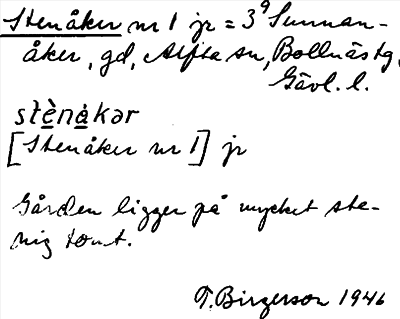 Stenåker nr 1 jr = 3⁹ Sunnan-
åker, gd, Alfta sn, Bollnästg,
Gävl. l.
stènåkər
[Stenåker nr 1] jr
Gården ligger på mycket ste-
nig tomt.
T. Birgerson 1946